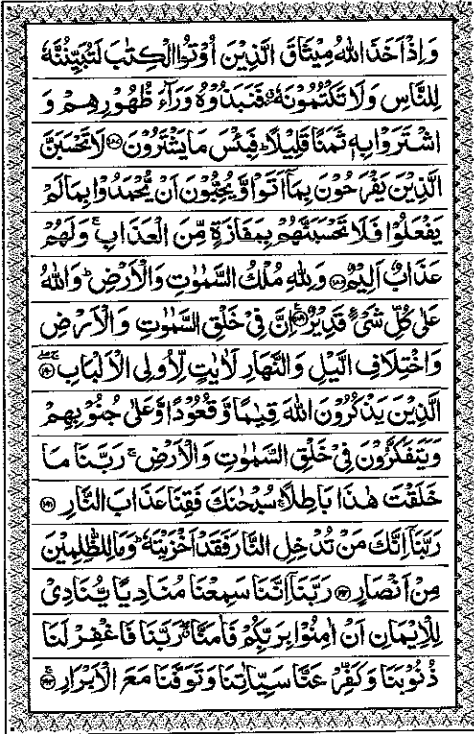 وَاِذْ اَخَذَ اللّٰهُ مِيْثَاقَ الَّذِيْنَ اُوْتُوا الْكِتٰبَ لَتُبَيِّنُنَّهٗ
لِلنَّاسِ وَلَا تَكْتُمُوْنَهٗ فَنَبَذُوْهُ وَرَآءَ ظُهُوْرِهِمْ وَ
اشْتَرَوْا بِهٖ ثَمَنًا قَلِيْلًاؕ فَبِئْسَ مَا يَشْتَرُوْنَ ۝۱۸۷ لَا تَحْسَبَنَّ
الَّذِيْنَ يَفْرَحُوْنَ بِمَاۤ اَتَوْا وَّيُحِبُّوْنَ اَنْ يُّحْمَدُوْا بِمَا لَمْ
يَفْعَلُوْا فَلَا تَحْسَبَنَّهُمْ بِمَفَازَةٍ مِّنَ الْعَذَابِ ۚ وَلَهُمْ
عَذَابٌ اَلِيْمٌ ۝۱۸۸ وَلِلّٰهِ مُلْكُ السَّمٰوٰتِ وَالْاَرْضِ ؕ وَاللّٰهُ
عَلٰى كُلِّ شَىْءٍ قَدِيْرٌ ۝۱۸۹ اِنَّ فِيْ خَلْقِ السَّمٰوٰتِ وَالْاَرْضِ
وَاخْتِلَافِ الَّيْلِ وَالنَّهَارِ لَاٰيٰتٍ لِّاُولِى الْاَلْبَابِ ۝۱۹۰
الَّذِيْنَ يَذْكُرُوْنَ اللّٰهَ قِيٰمًا وَّقُعُوْدًا وَّعَلٰى جُنُوْبِهِمْ
وَيَتَفَكَّرُوْنَ فِيْ خَلْقِ السَّمٰوٰتِ وَالْاَرْضِ ۚ رَبَّنَا مَا
خَلَقْتَ هٰذَا بَاطِلًا ۚ سُبْحٰنَكَ فَقِنَا عَذَابَ النَّارِ ۝۱۹۱
رَبَّنَاۤ اِنَّكَ مَنْ تُدْخِلِ النَّارَ فَقَدْ اَخْزَيْتَهٗ ؕ وَمَا لِلظّٰلِمِيْنَ
مِنْ اَنْصَارٍ ۝۱۹۲ رَبَّنَاۤ اِنَّنَا سَمِعْنَا مُنَادِيًا يُّنَادِيْ
لِلْاِيْمَانِ اَنْ اٰمِنُوْا بِرَبِّكُمْ فَاٰمَنَّا ۖ رَبَّنَا فَاغْفِرْ لَنَا
ذُنُوْبَنَا وَكَفِّرْ عَنَّا سَيِّاٰتِنَا وَتَوَفَّنَا مَعَ الْاَبْرَارِ ۝۱۹۳